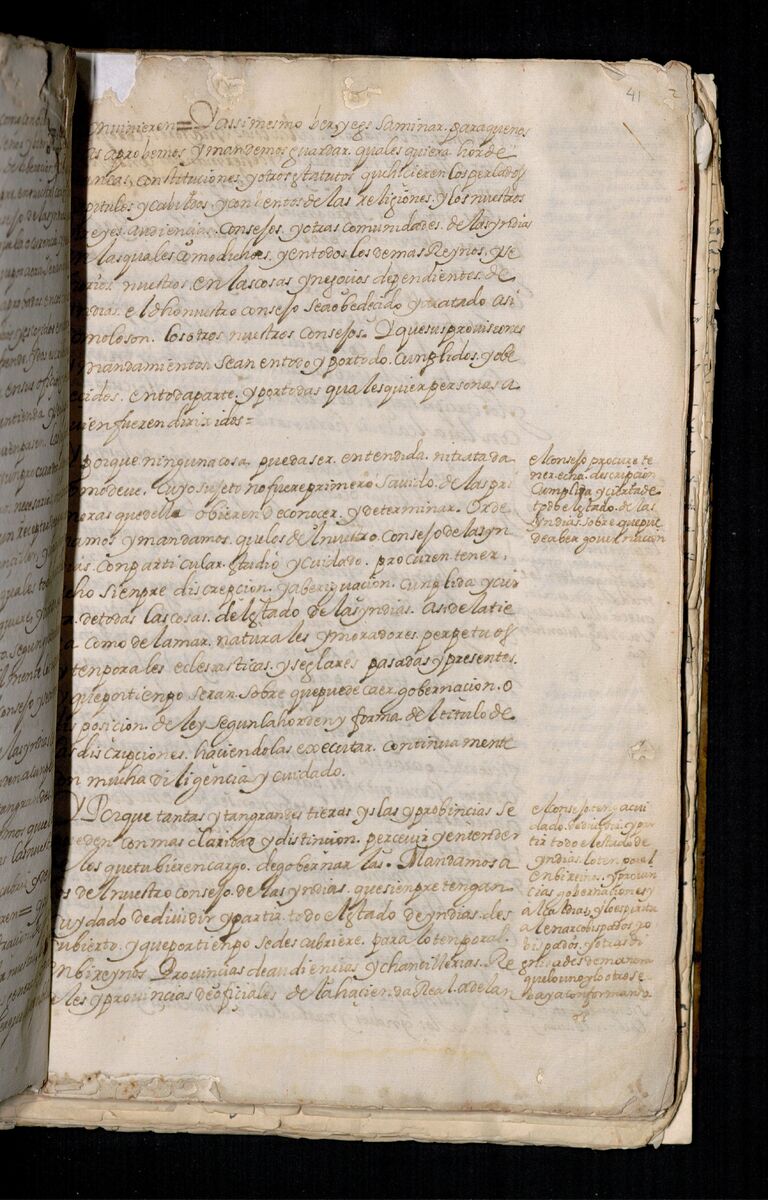 41
2
mvinieren = Y assi mesmo ber y esaminar. para que nos
los aprobemos y mandemos guardar. quales quiera horde
nanças, constituciones y otros statutos que hicieren los perlados
capitulos y cabildos y conbentos de las religiones. y los nuestros
birreyes. audiencias. consejos. y otras comunidades. de las yndias
en las quales como dicho es. y en todos los demas Reynos. y se
ñorios nuestros. en las cosas y negocios dependientes. de
yndias. el dho nuestro consejo sea obedecido y acatado. asi
como lo son. los otros nuestros consejos. Y que sus provisiones
y mandamientos sean en todo y por todo. cumplidos. y obe
decidos. en toda parte. y por todas quales quier personas a
quien fueren diririgidos =
Y porque ninguna cosa. pueda ser. entendida. ni tratada
como deve. cuyo sujeto no fuere primero savido. de las pers
sonas que della obieren de conocer. y determinar. Orde
namos y mandamos. que los de el nuestro consejo de las yn
dias. con particular. studio y cuidado. procuren tener,
hecho sienpre discrepcion. y aberiguacion. cunplida y cier
ta. de todas las cosas. del estado de las yndias. asi de la tie
rra como de la mar. naturales y moradores. perpetuos
y tenporales eclesiasticas. y seglares pasadas y presentes.
y que por tienpo seran. sobre que puede caer gobernacion. o
disposicion. de ley segun la horden y forma. del titulo de
las discrepciones. haciendolas executar. continuamente
con mucha diligencia y cuidado.
Y Porque tantas y tan grandes tieras yslas y probincias se
pueden con mas claridad y distincion. percevir y entender
de los que tubieren cargo. de gobernarlas. Mandamos a
los de el nuestro consejo. de las yndias. que sienpre tengan
cuydado de dividir y partir. todo el estado de yndias. des
cubierto. y que por tienpo se descubriere. para lo tenporal.
en bireynos Provincias de audiencias y chancillerias. Re
ales y provincias de oficiales de la hacienda Real. adelan
el consejo procure te
ner echa. descripcion
Cumplida y cierta de
todo el estado. de las
yndias. sobre que pue
de aber governacion
el consejo. tenga cui
dado de dividir. y par
tir todo el estado de
yndias. lo tenporal
en bireinos. y provin
cias gobernaciones y
alcaldias. y lo espiritu
al en arcobispados y o
bispados. y otras di
gnidades de manera
que lo uno y lo otro se
baya conformando